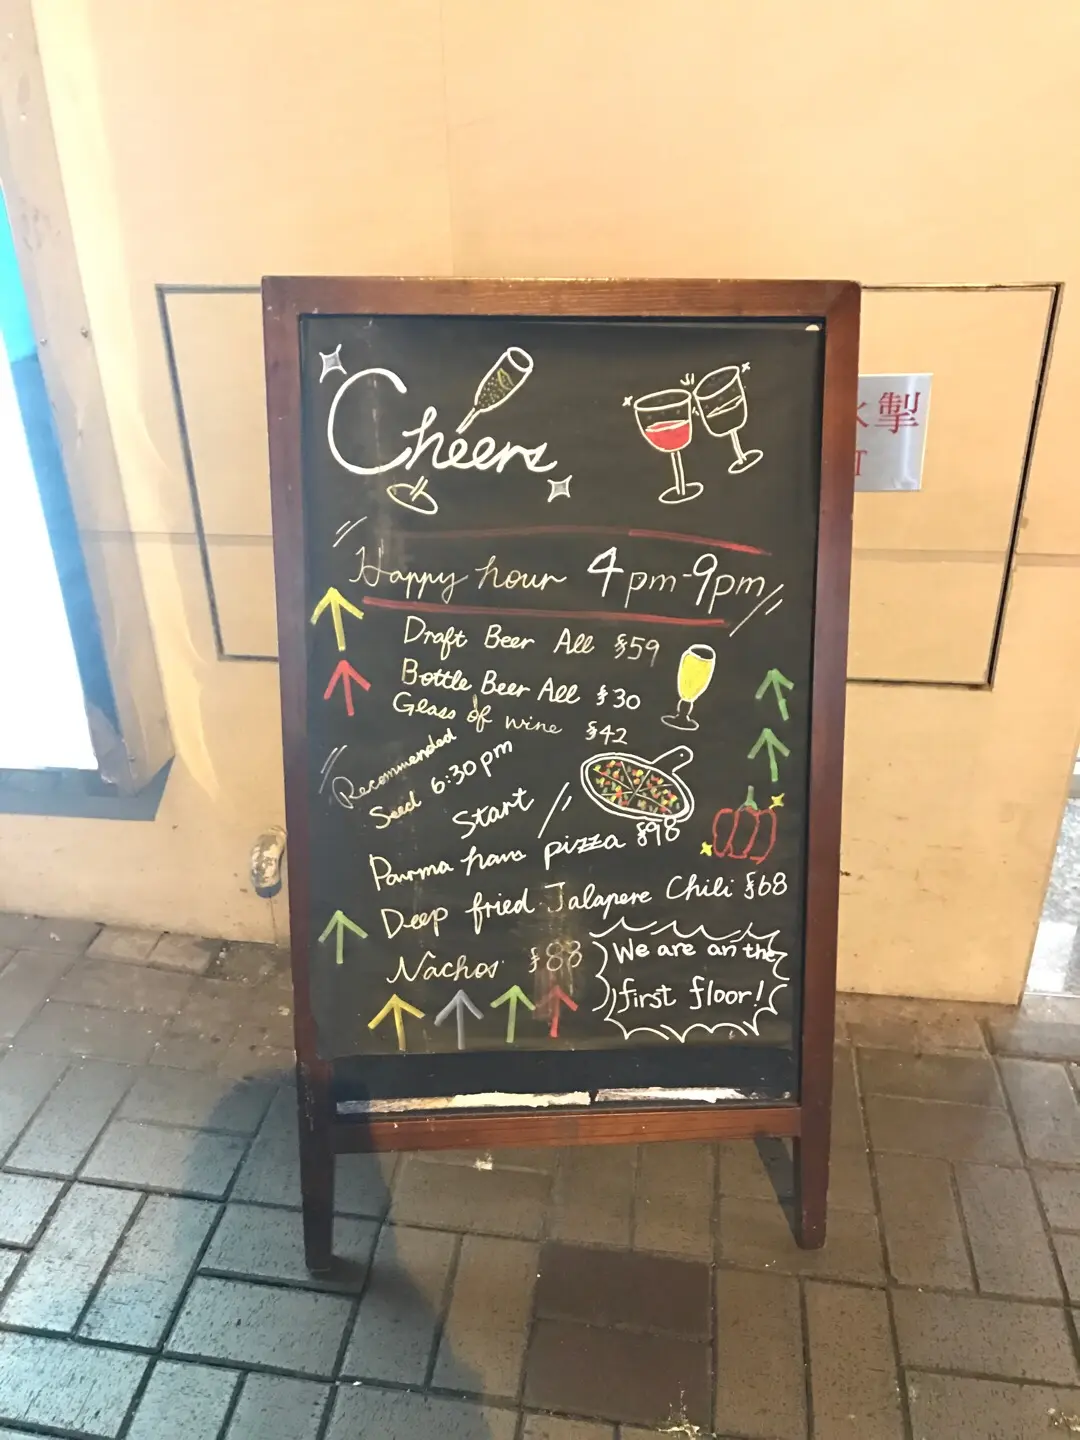 Cheers
Happy hour 4pm-9pm
Draft Beer All $59
Bottle Beer All $30
Glass of wine $42
Recommended
Seed 6:30pm
Start
Parma hava pizza $98
Deep fried Jalapere Chili $68
Nachos $88
We are an the
first floor!
掣
T